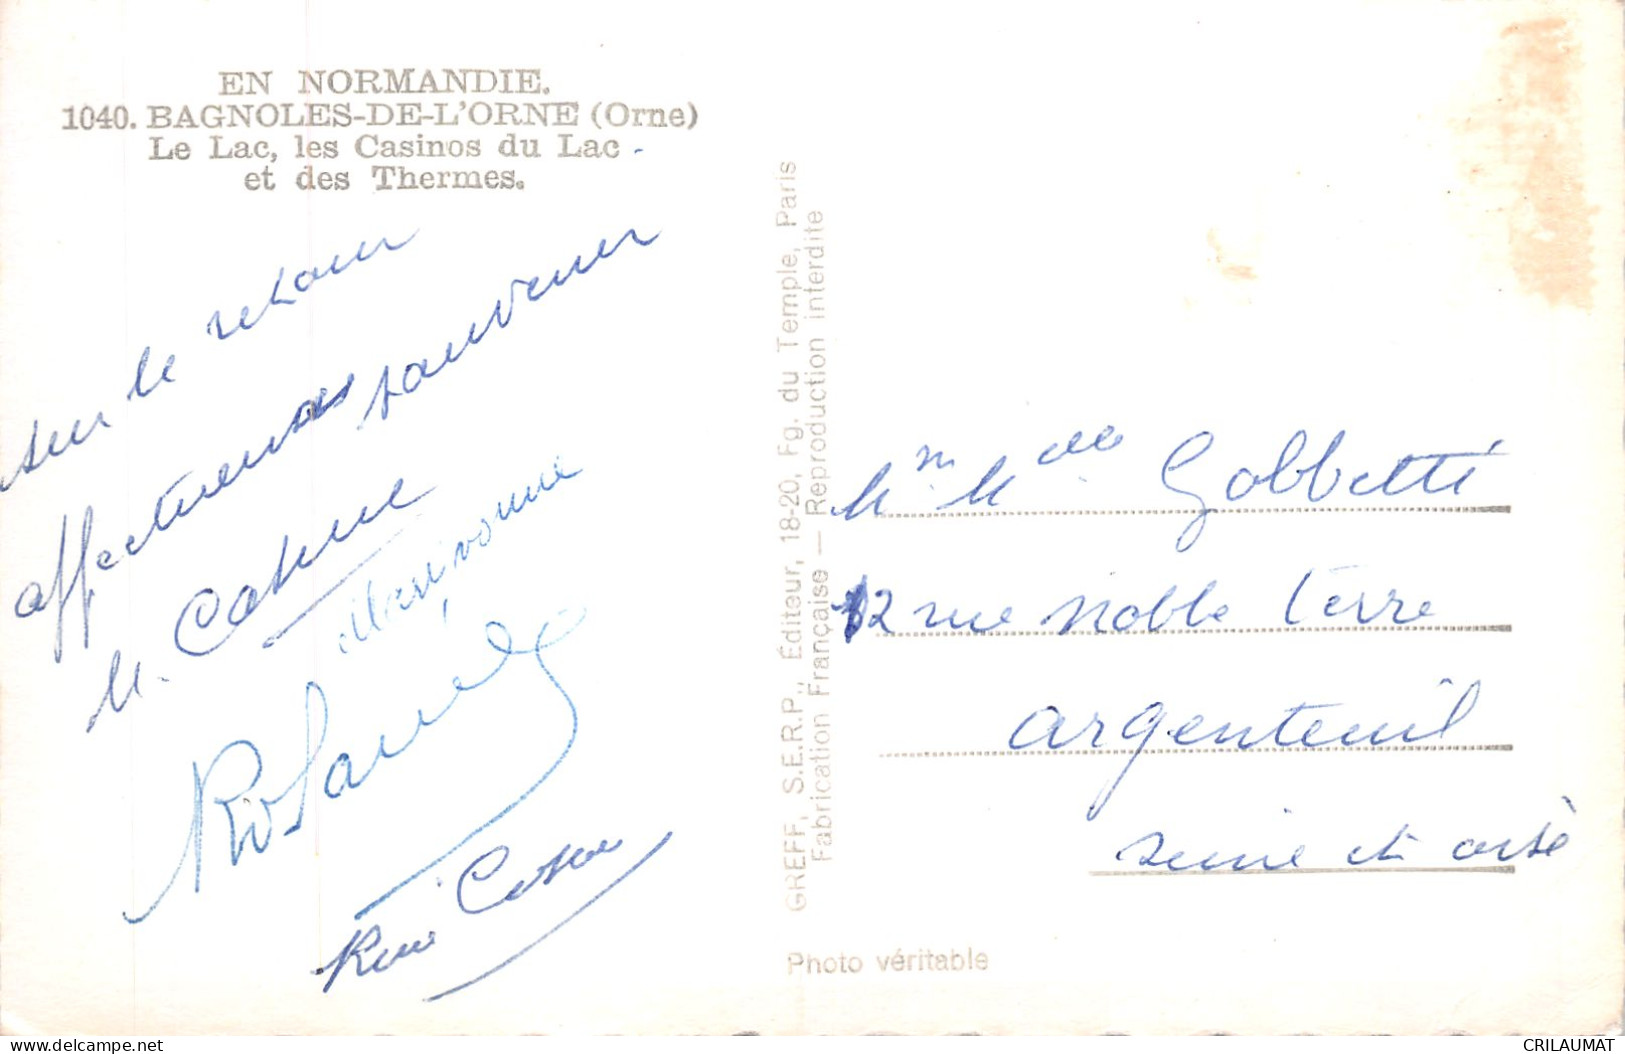 EN NORMANDIE.
1040. BAGNOLES-DE-L'ORNE (Orne)
Le Lac, les Casinos du Lac
et des Thermes.
sur le retour
affectueux souvenir
M.
Maryvonne
René
GREFF, S.E.R.P., Éditeur, 18-20, Fg. du Temple, Paris
Fabrication Française — Reproduction interdite
Photo véritable
Mr. Mme Gobbetti
12 rue Noble Terre
argenteuil
seine et oise
delcampe.net
CRILAUMAT